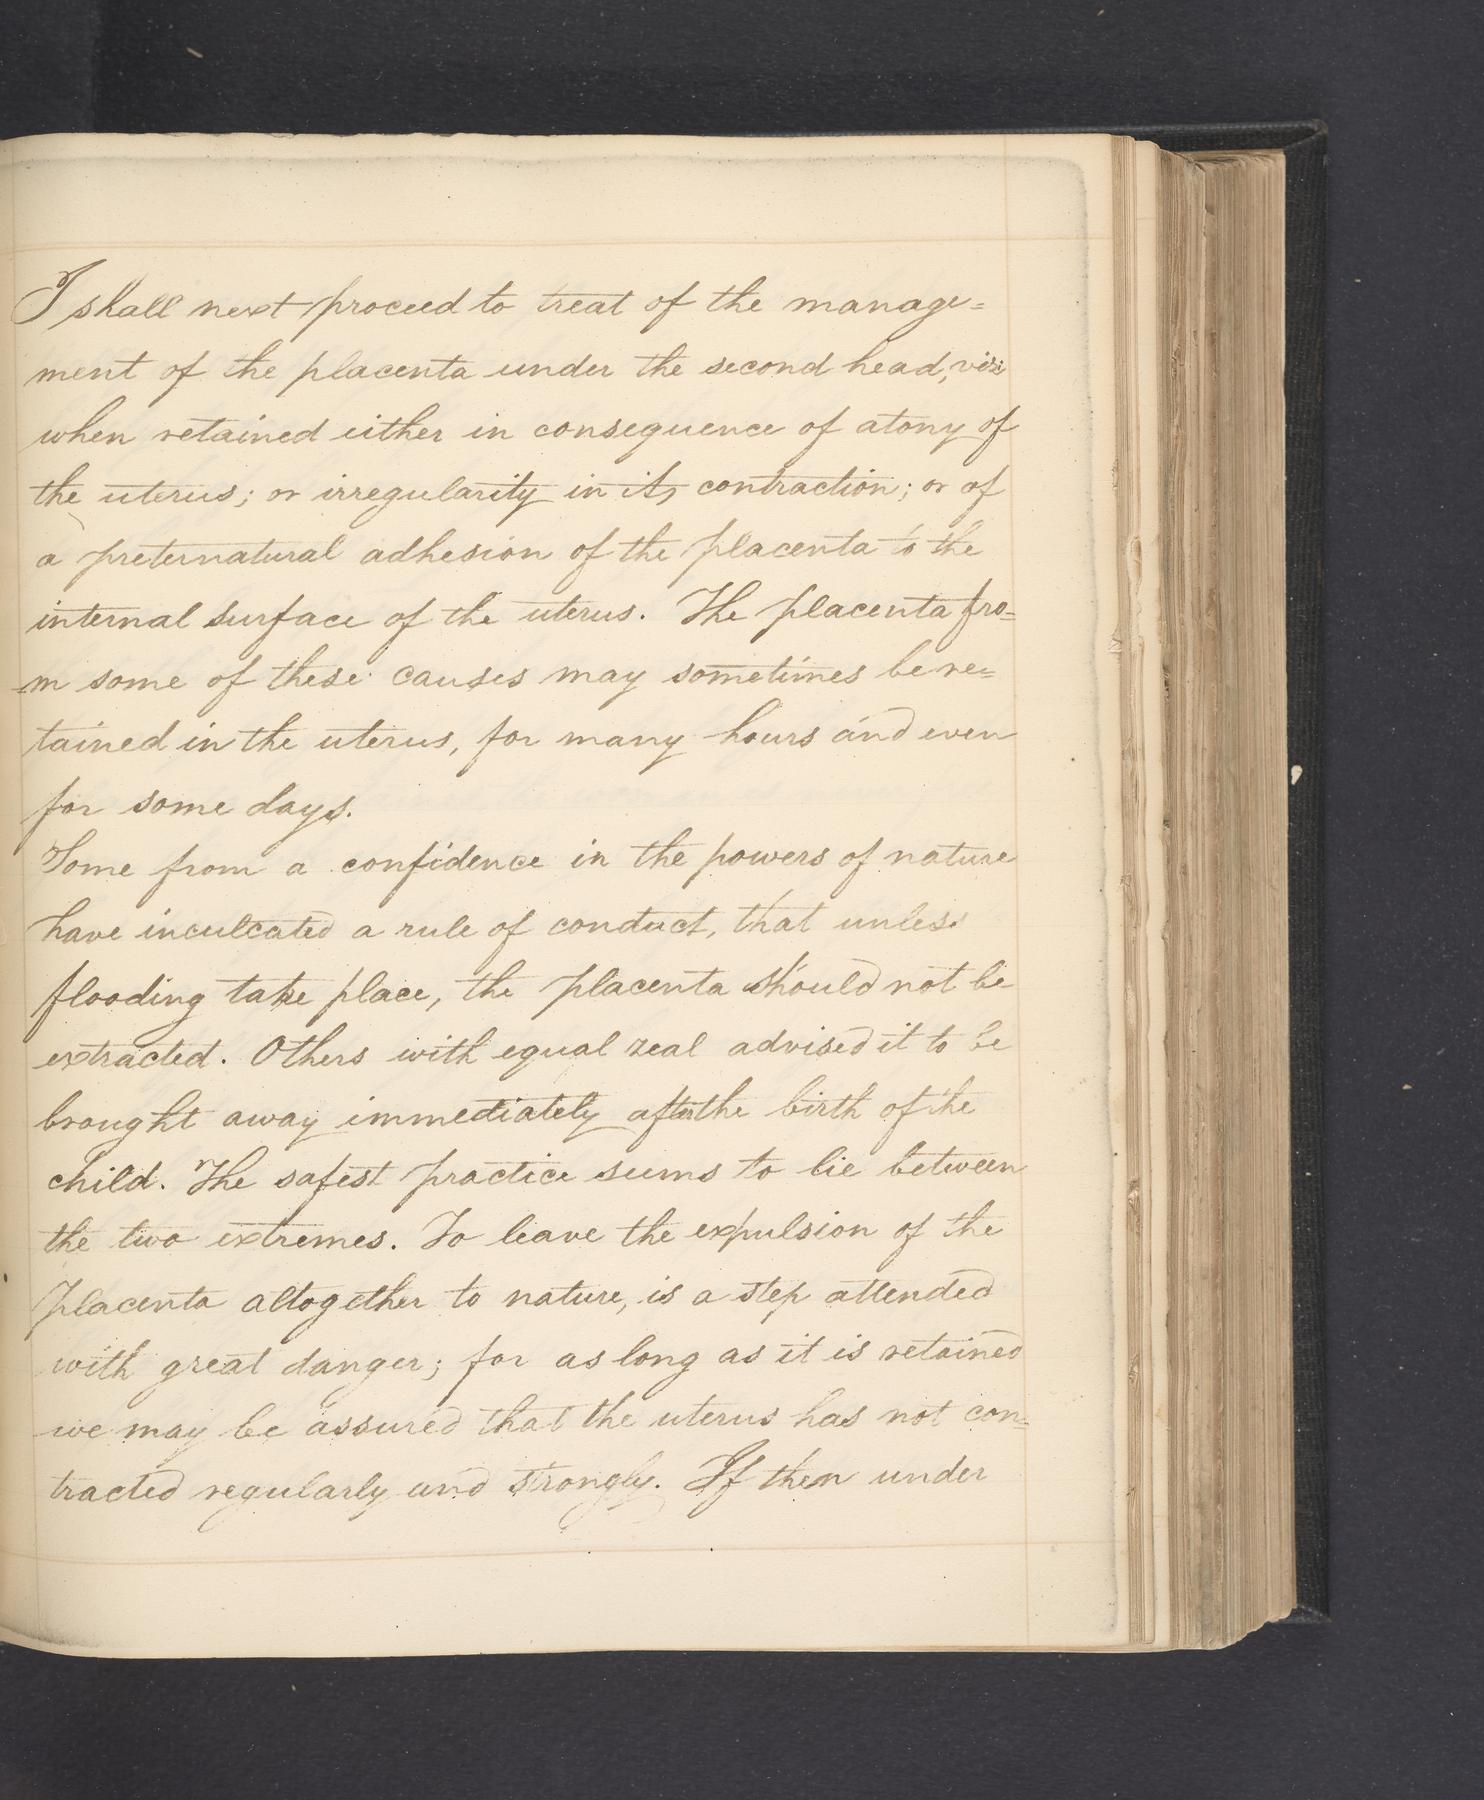 I shall next proceed to treat of the manage=
ment of the placenta under the second head, viz:
when retained either in consequence of atony of
the uterus; or irregularity in its contraction; or of
a preternatural adhesion of the placenta to the
internal surface of the uterus. The placenta fro=
m some of these causes may sometimes be re=
tained in the uterus, for many hours and even
for some days.
Some from a confidence in the powers of nature
have inculcated a rule of conduct, that unless
flooding take place, the placenta should not be
extracted. Others with equal zeal advised it to be
brought away immediately after the birth of the
child. The safest practice seems to lie between
the two extremes. To leave the expulsion of the
placenta altogether to nature, is a step attended
with great danger; for as long as it is retained
we may be assured that the uterus has not con=
tracted regularly and strongly. If then under